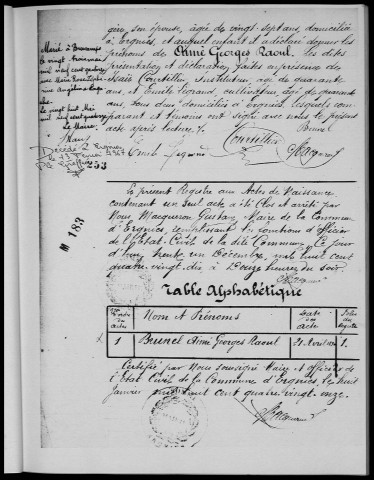 gère, son épouse, agée de vingt sept ans, domiciliée
à Ergnies, et auquel enfant il a déclaré donner les
prénoms de Aimé Georges Raoul. Les dites
présentation et déclaration faites en présence de
Isaïe Courtillier, Instituteur, agé de quarante
ans, et Emile Legrand, cultivateur, agé de quarante
ans, tous deux domiciliés à Ergnies, lesquels com-
parant et témoins ont signé avec nous le présent
acte après lecture./.
Brunel
Courtillier
Emile Legrand
Macqueron
Marié à
le vingt trois mai
mil neuf cent quatorze
avec
Le vingt huit Mai
mil neuf cent quatorze
Le Maire,
Décédé à Ergnies
le 13 1967
Le Greffier
253
M 183
Le présent Registre aux Actes de Naissance
contenant un seul acte a été Clos et arrêté par
Nous Macqueron Gustave, Maire de la Commune
d'Ergnies, remplissant les fonctions d'Officier
de l'Etat-Civil de la dite Commune, ce jour
d'hui trente un Décembre, mil huit cent
quatre-vingt-dix à Douze heures du soir
Macqueron
Table Alphabétique
Nos d'ordre des actes
Nom et Prénoms
Date des Actes
Folios du registre
1
Brunel Aimé Georges Raoul
21 Avril
1.
Certifié par Nous soussigné Maire et Officier de
l'Etat Civil de la Commune d'Ergnies, le huit
Janvier mil huit cent quatre-vingt-onze.
Macqueron